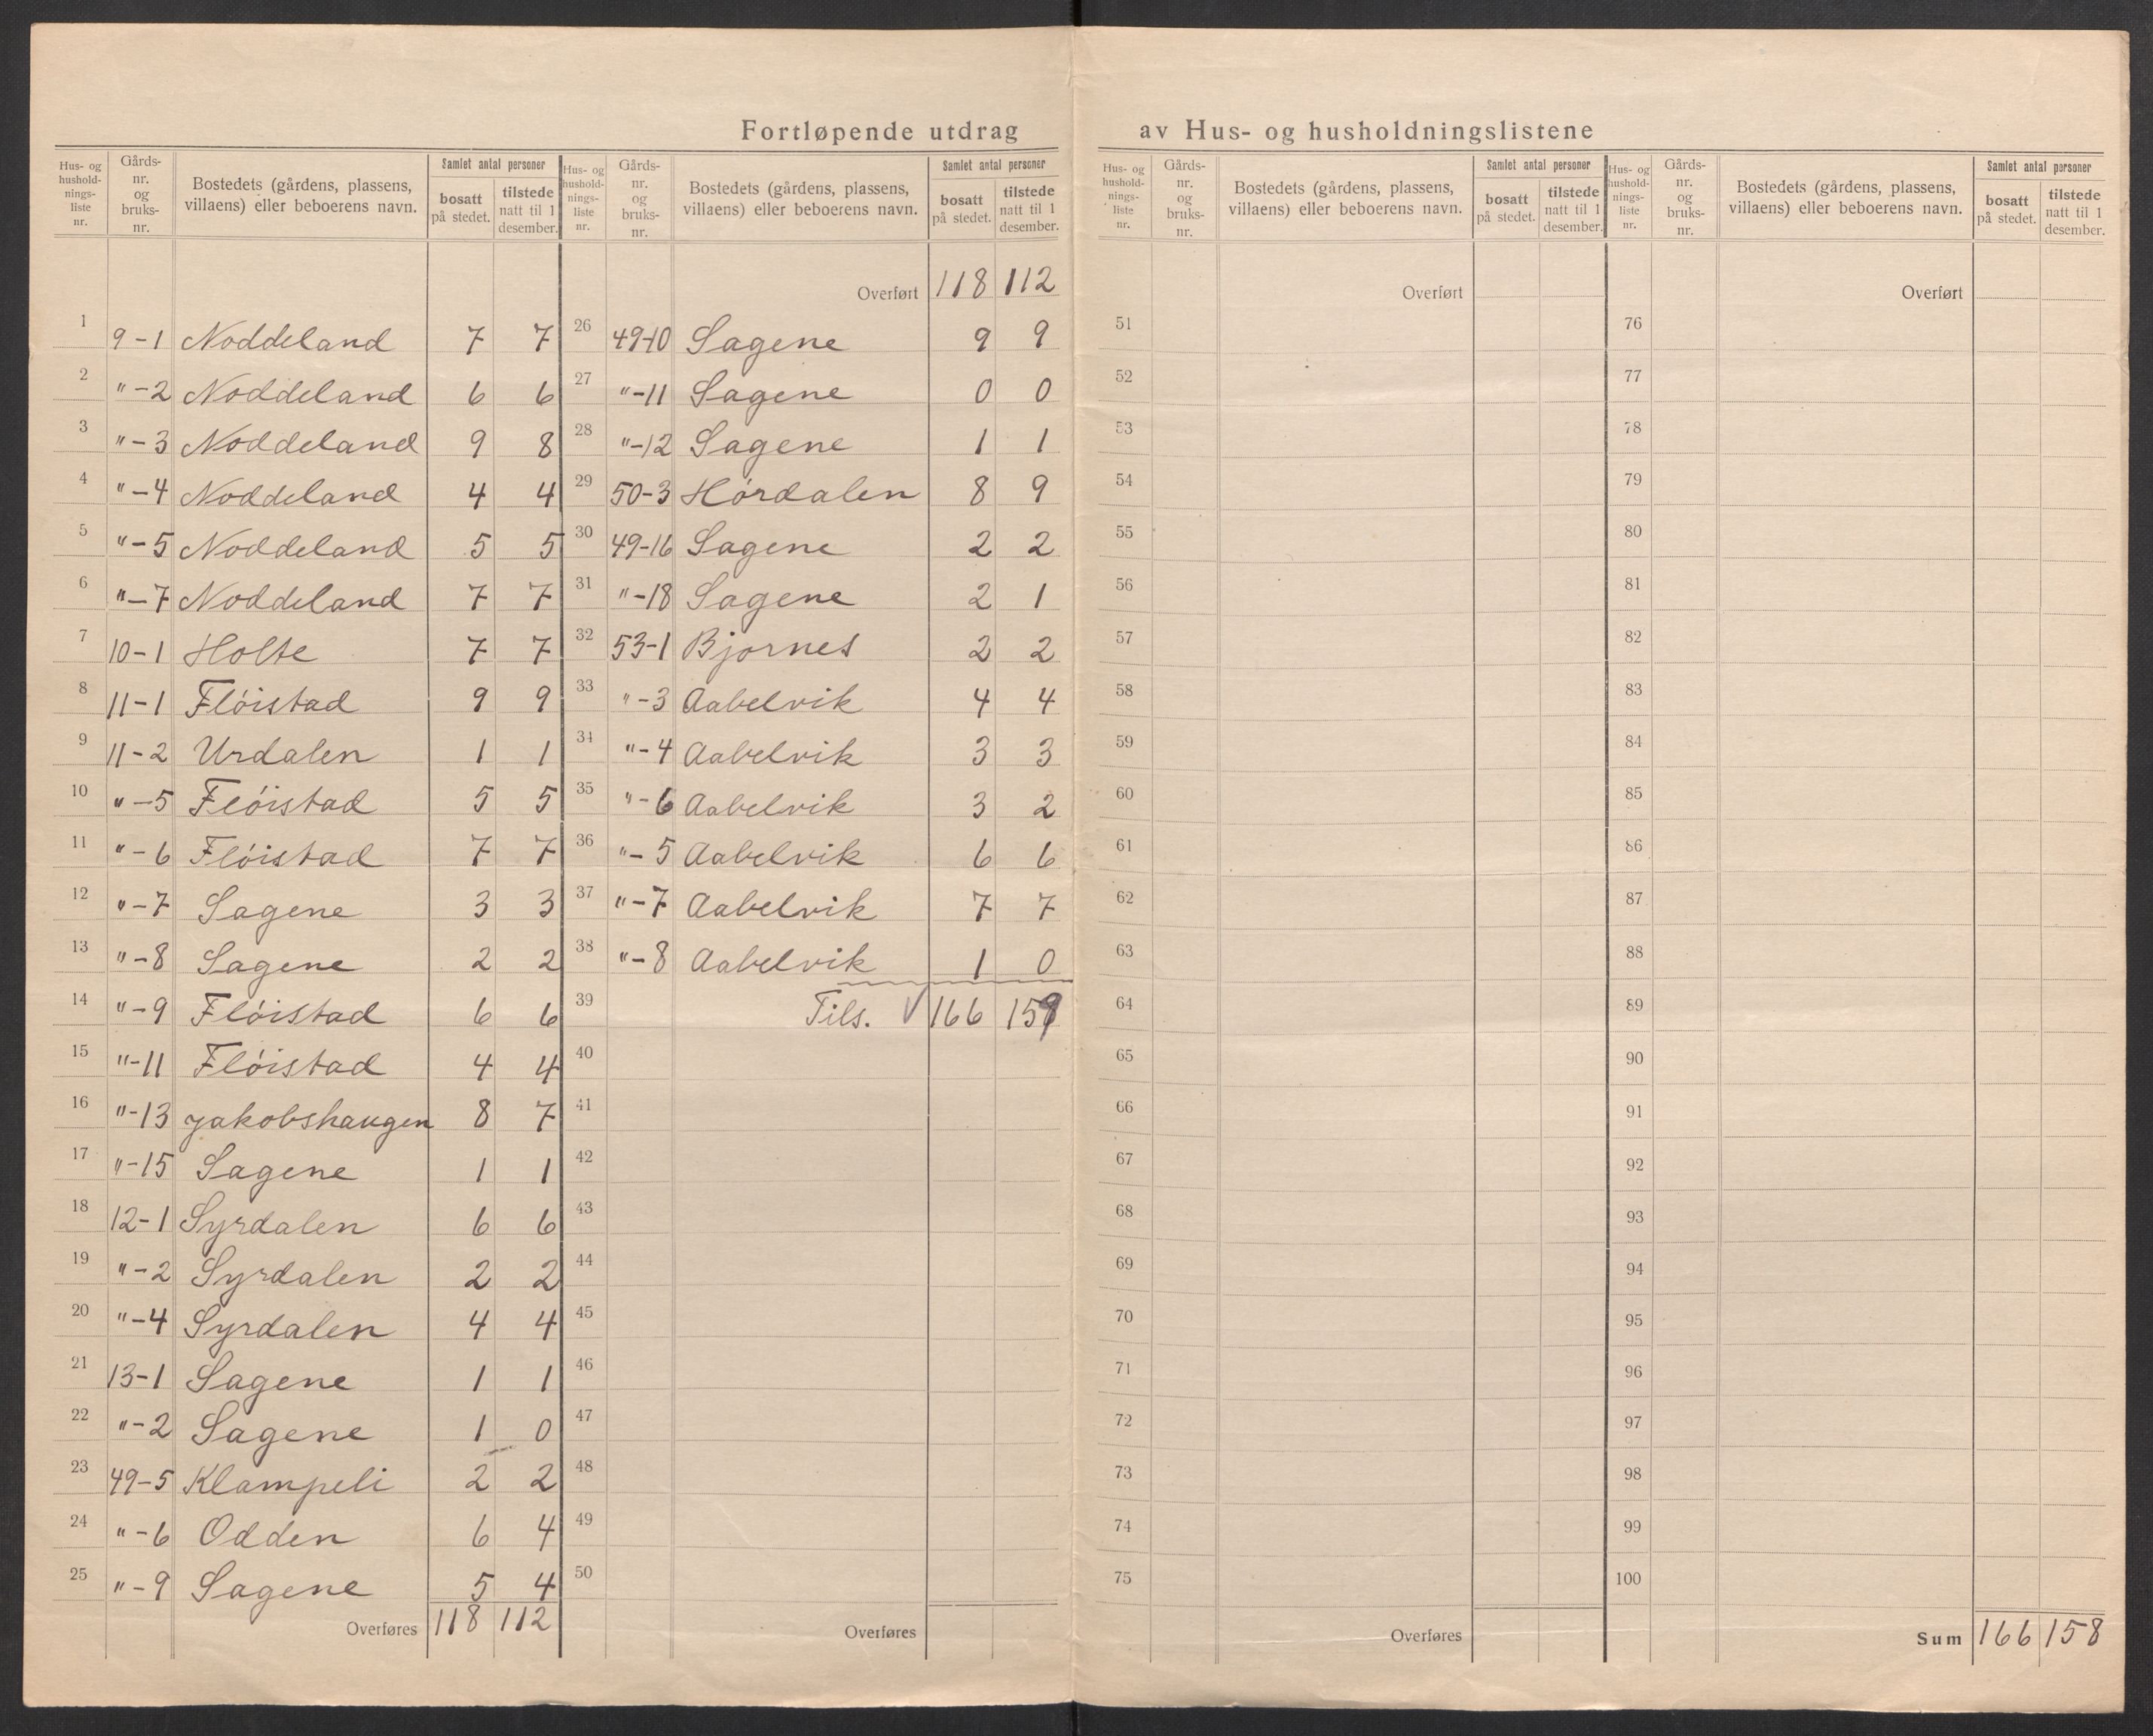 Fortløpende utdrag av Hus- og husholdningslistene
Hus- og hushold-nings-liste nr. Gårds-nr. og bruks-nr. Bostedets (gårdens, plassens, villaens) eller beboerens navn. Samlet antal personer bosatt på stedet. tilstede natt til 1 desember.
1 9-1 Noddeland 7 7
2 "-2 Noddeland 6 6
3 "-3 Noddeland 9 8
4 "-4 Noddeland 4 4
5 "-5 Noddeland 5 5
6 "-7 Noddeland 7 7
7 10-1 Holte 7 7
8 11-1 Flóistad 9 9
9 11-2 Urdalen 1 1
10 "-5 Flóistad 5 5
11 "-6 Flóistad 7 7
12 "-7 Sagene 3 3
13 "-8 Sagene 2 2
14 "-9 Flóistad 6 6
15 "-11 Flóistad 4 4
16 "-13 Jakobshaugen 8 7
17 "-15 Sagene 1 1
18 12-1 Syrdalen 6 6
19 "-2 Syrdalen 2 2
20 "-4 Syrdalen 4 4
21 13-1 Sagene 1 1
22 "-2 Sagene 1 0
23 49-5 Klampeli 2 2
24 "-6 Odden 6 4
25 "-9 Sagene 5 4
Overføres 118 112
Hus- og hushold-nings-liste nr. Gårds-nr. og bruks-nr. Bostedets (gårdens, plassens, villaens) eller beboerens navn. Samlet antal personer bosatt på stedet. tilstede natt til 1 desember.
Overført 118 112
26 49-10 Sagene 9 9
27 "-11 Sagene 0 0
28 "-12 Sagene 1 1
29 50-3 Hórdalen 8 9
30 49-16 Sagene 2 2
31 "-18 Sagene 2 1
32 53-1 Bjornes 2 2
33 "-3 Aabelvik 4 4
34 "-4 Aabelvik 3 3
35 "-6 Aabelvik 3 2
36 "-5 Aabelvik 6 6
37 "-7 Aabelvik 7 7
38 "-8 Aabelvik 1 0
39 Tils. 166 159
40
41
42
43
44
45
46
47
48
49
50
Overføres
Hus- og hushold-nings-liste nr. Gårds-nr. og bruks-nr. Bostedets (gårdens, plassens, villaens) eller beboerens navn. Samlet antal personer bosatt på stedet. tilstede natt til 1 desember.
Overført
51
52
53
54
55
56
57
58
59
60
61
62
63
64
65
66
67
68
69
70
71
72
73
74
75
Overføres
Hus- og hushold-nings-liste nr. Gårds-nr. og bruks-nr. Bostedets (gårdens, plassens, villaens) eller beboerens navn. Samlet antal personer bosatt på stedet. tilstede natt til 1 desember.
Overført
76
77
78
79
80
81
82
83
84
85
86
87
88
89
90
91
92
93
94
95
96
97
98
99
100
Sum 166 158